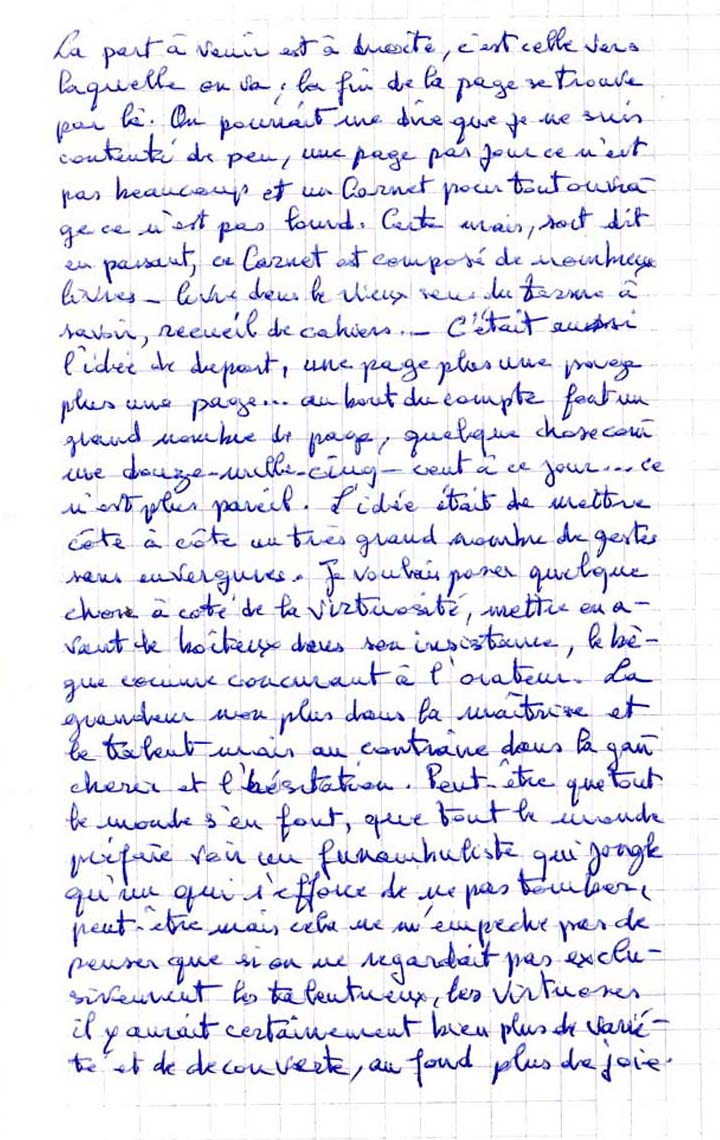 La part à venir est à droite, c'est celle vers
laquelle on va ; la fin de la page se trouve
par là. On pourrait me dire que je me suis
contenté de peu, une page par jour ce n'est
pas beaucoup et un Carnet pour tout ouvra-
ge ce n'est pas lourd. Certe mais, soit dit
en passant, ce Carnet est composé de nombreux
livres – livre dans le vieux sens du terme à
savoir, recueil de cahiers. – C'était aussi
l'idée de depart, une page plus une page
plus une page... au bout du compte font un
grand nombre de page, quelque chose com
me douze-mille-cinq-cent à ce jour... ce
n'est plus pareil. L'idée était de mettre
côte à côte un très grand nombre de gestes
sans envergures. Je voulais poser quelque
chose à coté de la virtuosité, mettre en a-
vant le boîteux dans son insistance, le bè-
gue comme concurant à l'orateur. La
grandeur non plus dans la maîtrise et
le talent mais au contraire dans la gau
cherie et l'hésitation. Peut-être que tout
le monde s'en fout, que tout le monde
préfaire voir un funambuliste qui jongle
qu'un qui s'efforce de ne pas tomber,
peut-être mais cela ne m'empeche pas de
penser que si on ne regardait pas exclu-
sivement les talentueux, les virtuoses
il y aurait certainement bien plus de varié-
té et de decouverte, au fond plus de joie.